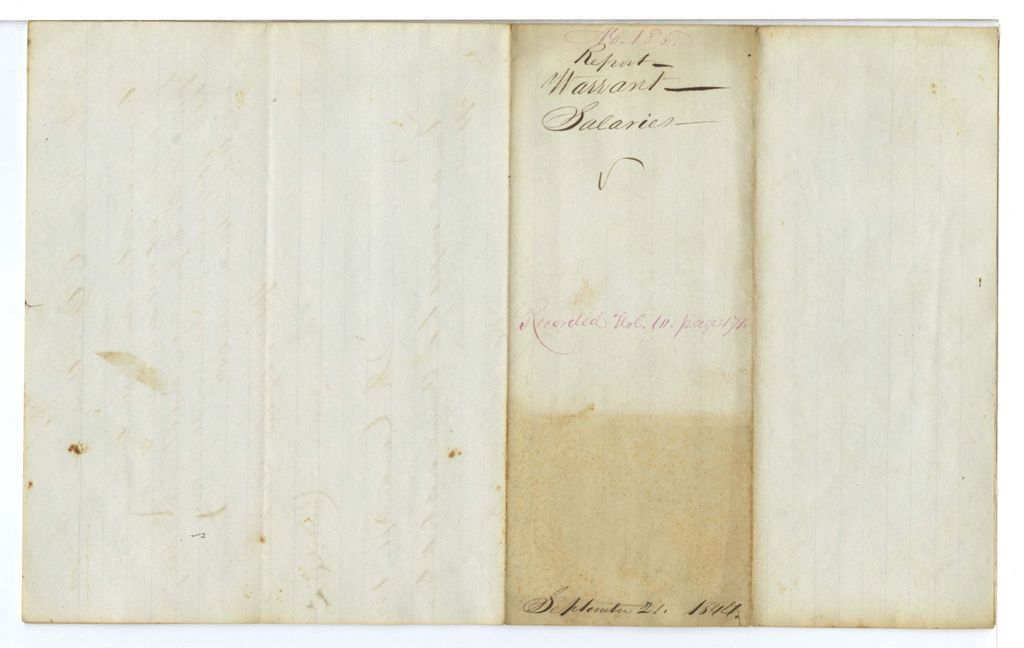 No. 185.
Report
Warrant
Salaries
Recorded Vol. 10. page 171.
September 21. 1844.